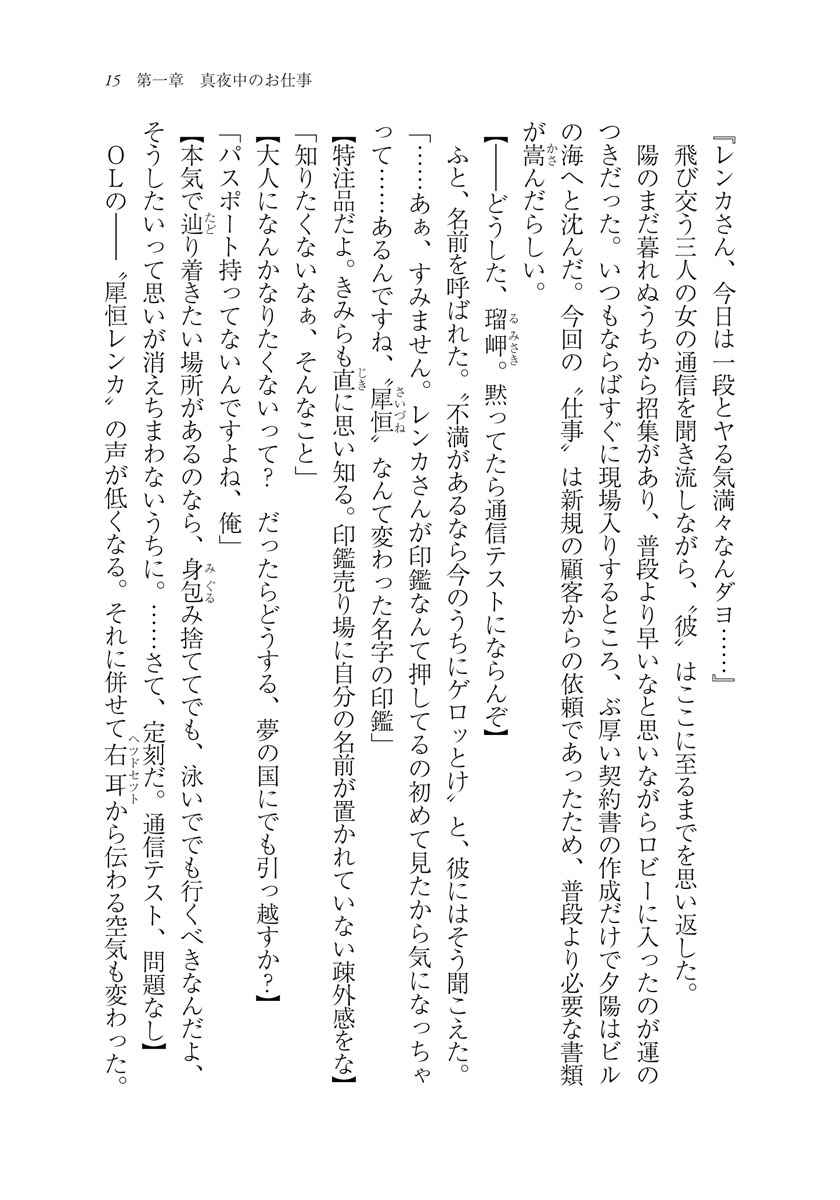 15　第一章　真夜中のお仕事
『レンカさん、今日は一段とヤる気満々なんダヨ……』
　飛び交う三人の女の通信を聞き流しながら、〝彼〟はここに至るまでを思い返した。
　陽のまだ暮れぬうちから招集があり、普段より早いなと思いながらロビーに入ったのが運の
つきだった。いつもならばすぐに現場入りするところ、ぶ厚い契約書の作成だけで夕陽はビル
の海へと沈んだ。今回の〝仕事〟は新規の顧客からの依頼であったため、普段より必要な書類
が嵩んだらしい。
【――どうした、瑠岬。黙ってたら通信テストにならんぞ】
　ふと、名前を呼ばれた。〝不満があるなら今のうちにゲロッとけ〟と、彼にはそう聞こえた。
「……あぁ、すみません。レンカさんが印鑑なんて押してるの初めて見たから気になっちゃ
って……あるんですね、〝犀恒〟なんて変わった名字の印鑑」
【特注品だよ。きみらも直に思い知る。印鑑売り場に自分の名前が置かれていない疎外感をな】
「知りたくないなぁ、そんなこと」
【大人になんかなりたくないって？　だったらどうする、夢の国にでも引っ越すか？】
「パスポート持ってないんですよね、俺」
【本気で辿り着きたい場所があるのなら、身包み捨ててでも、泳いででも行くべきなんだよ、
そうしたいって思いが消えちまわないうちに。……さて、定刻だ。通信テスト、問題なし】
　ＯＬの――〝犀恒レンカ〟の声が低くなる。それに併せて右耳から伝わる空気も変わった。